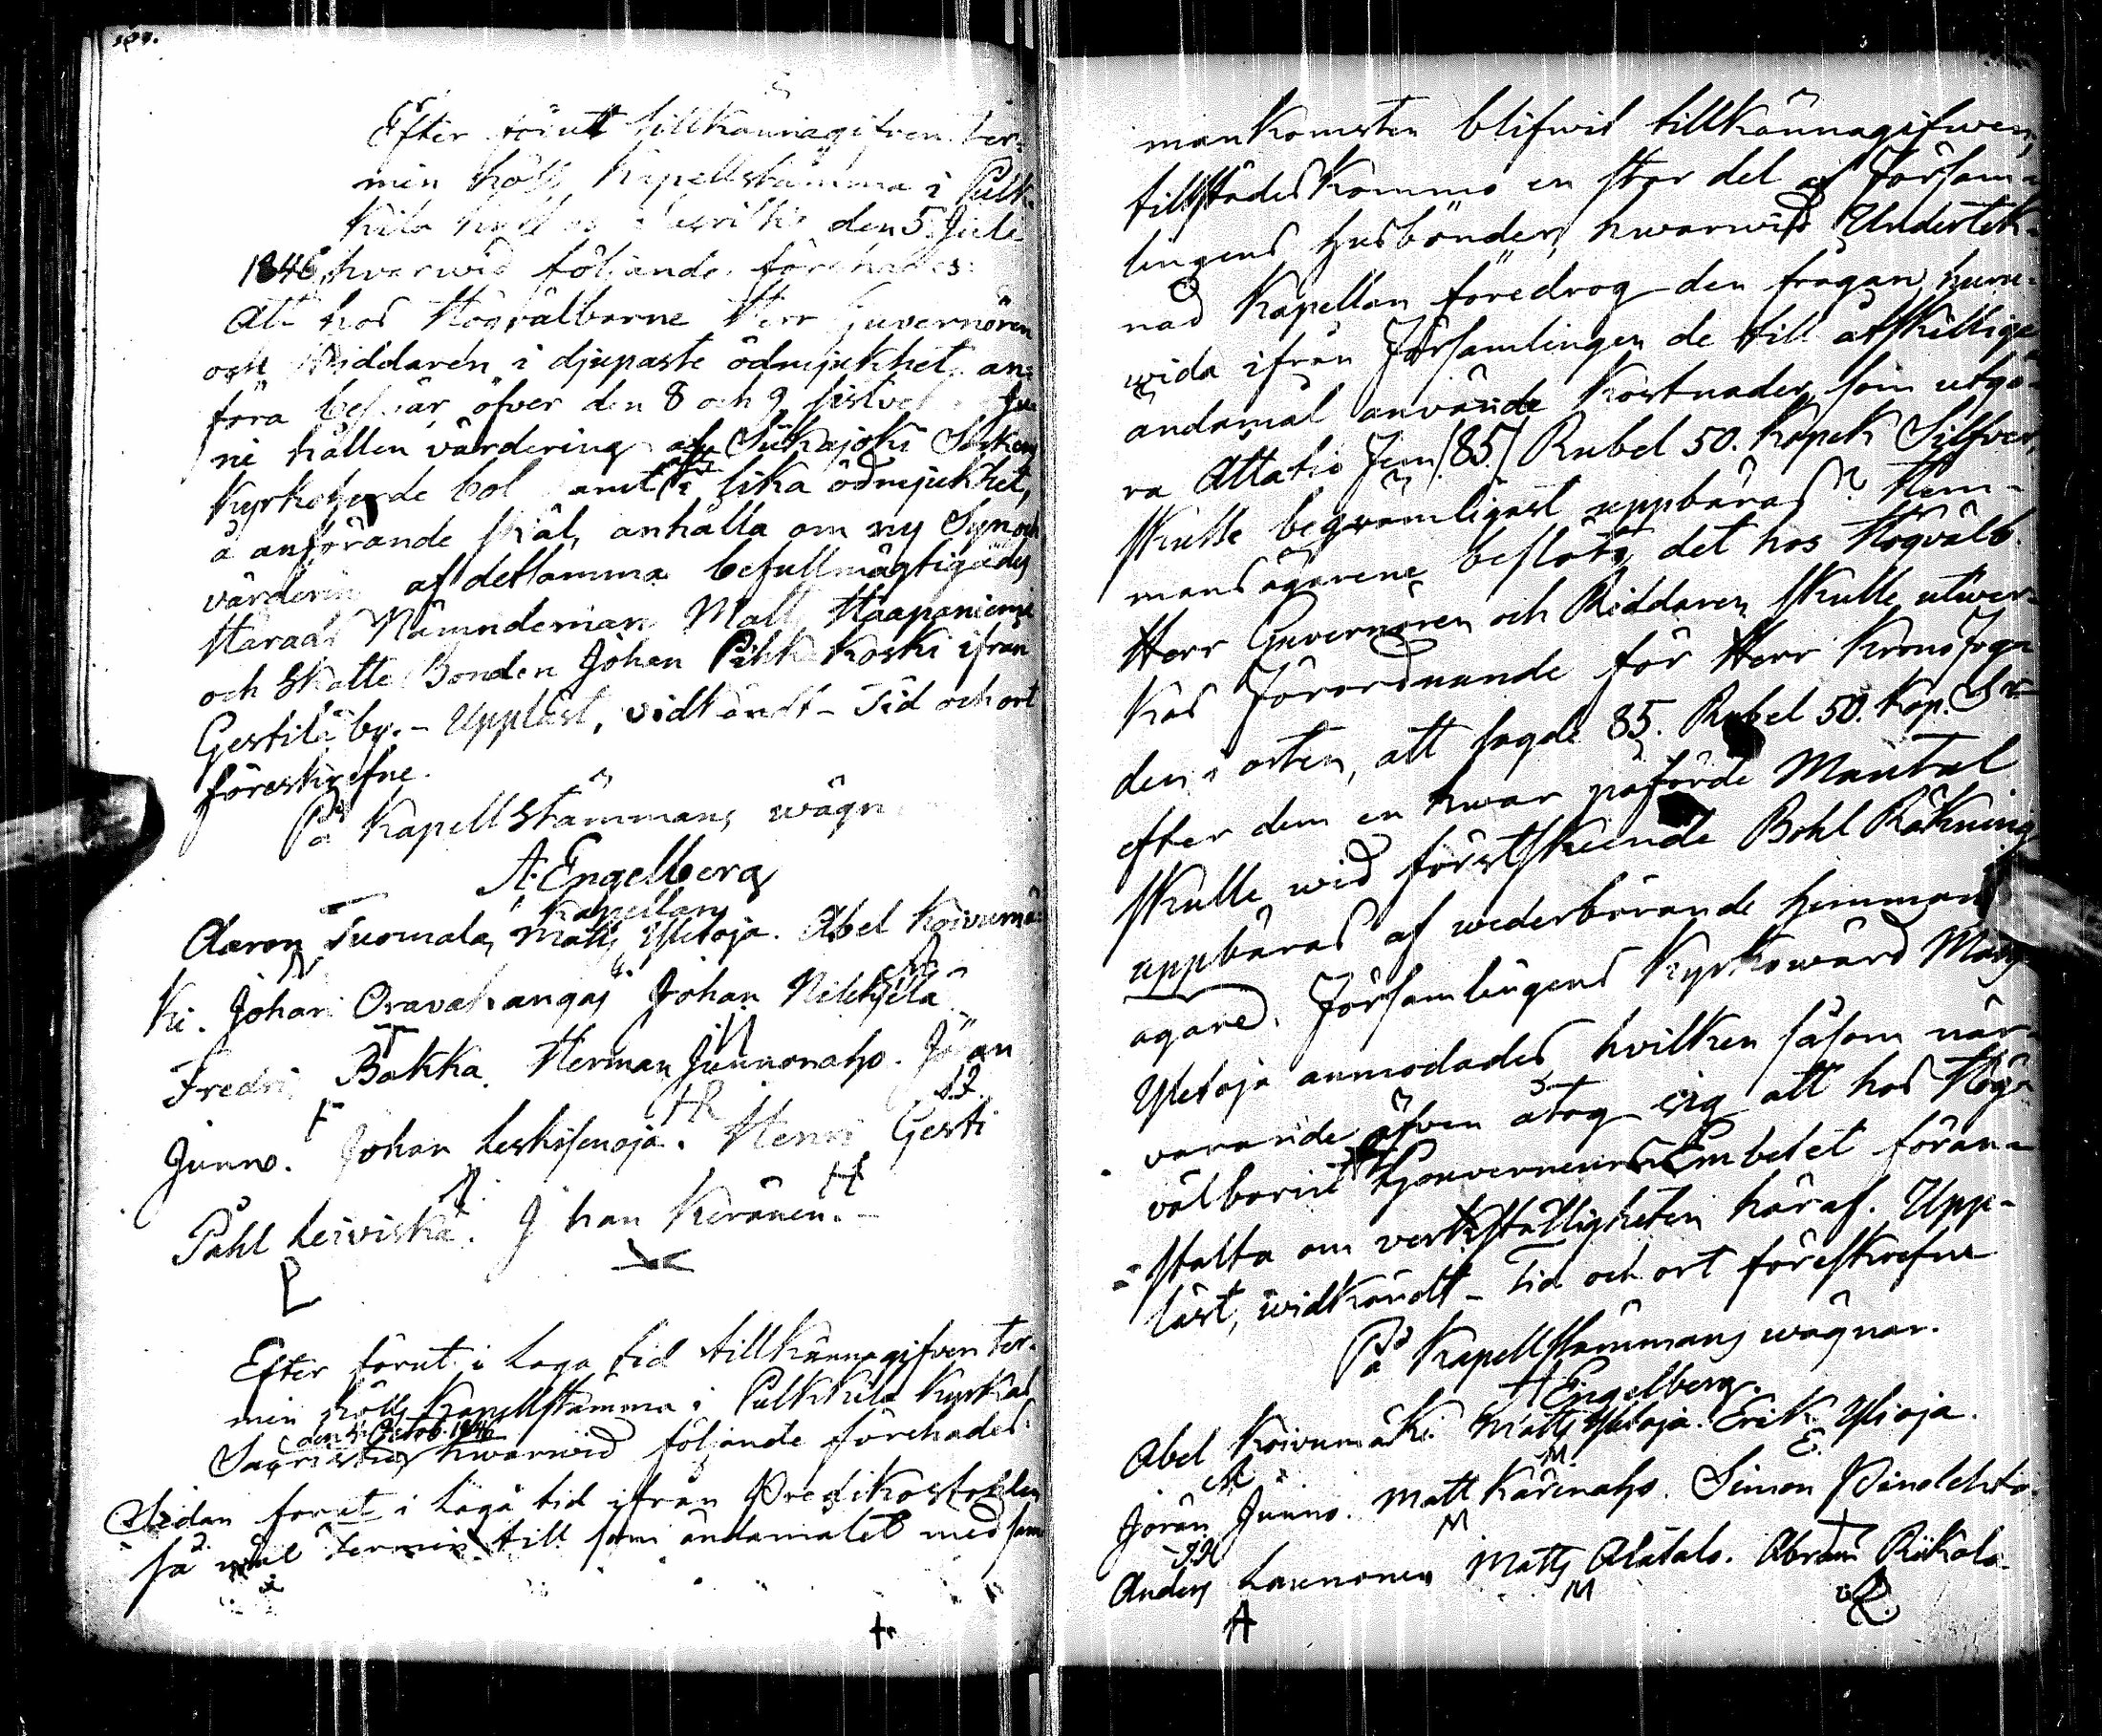 Efter förut tillkännagifven ter-
min hölls Kapellstämma i Pulk-
kila den 5 Juli
1846, hvarwid följande förehades:
Att hos Högvälborne Herr Guvernören
och Riddaren i djupaste ödmjukhet an-
föra besvär öfver den 8 och 9 sistvi Ju
ni hållen värdering af Siikajoki Socken
Kyrkoherde bol samt i lika ödmjukhet,
å anförande skäl, anhålla om ny Syn och
värderin af detsamma befullmägtigades
Härads Nämndeman Matt Haapaniemi
och Skatte Bonden Johan Pihkakoski ifrån
Gestilä by. - Uppläst, vidkändt - Tid och ort
föreskrefne.
På Kapellstämmans wägn
A: Engelberg
Kapellan
Aaron Tuomala, Matts Yletoja. Abel Koivumä-
ki. Johan Oravakangas Johan
Fredri Bakka. Herman Junnonaho. Jöran
F HR J.J.
Junno. Johan Leskisenoja. Henri Gesti
H
Påhl Leiviskä. J han Keränen. -
P
Efter förut i Laga tid tillkännagifven ter-
min hölls Kapellstämma i Pulkkila Kyrkas
Octob. 1846
Sacristia hwarwid följande förehades:
Sedan forut i Laga tid ifrån Predikostohlen
så wäl termin till som ändamålet med sam
mankomsten blifwit tillkännagifwen,
tillstädeskommo en stor del af Försam-
lingens husbönder, hwarwid Undertek-
nad Kapellan föredrog den frågan, huru-
wida ifrån Församlingen de till åtskillige
ändamål använde Kostnader, som utgö-
ra Åttatio Fem /85/ Rubel 50. Kopek Silfver,
skulle beqvämligast uppbäras? Hem-
mansägarene beslöto, det hos Högvälb.
Herr Guvernören och Riddaren skulle utwer-
kas Förordnande för Herr Kronofogn
den i orten, att sagde 85. Rubel 50. Kop. Sr
efter dem en hwar påförde Mantal
skulle wid förstskeende Bohl Räkning
uppbäras af wederbörande hemmans
agare. Församlingens Kyrkowärd Matts
Yletoja anmodades, hvilken såsom när-
varande äfven åtog sig att hos Hög-
välborne Gouverneurs Embetet föran-
stalta om verkställigheten häraf. Upp-
läst, widkändt - Tid och ort föreskrefne
På Kapellstämmans wägnar.
A Engelberg.
Abel Koivumäki Matts Yletoja. Erik Ylioja.
M E.
Jöran Junno. Matt Kärenaho. Simon
M
Anders Lasenonen Matts Alatalo. Abram Riikola
A M